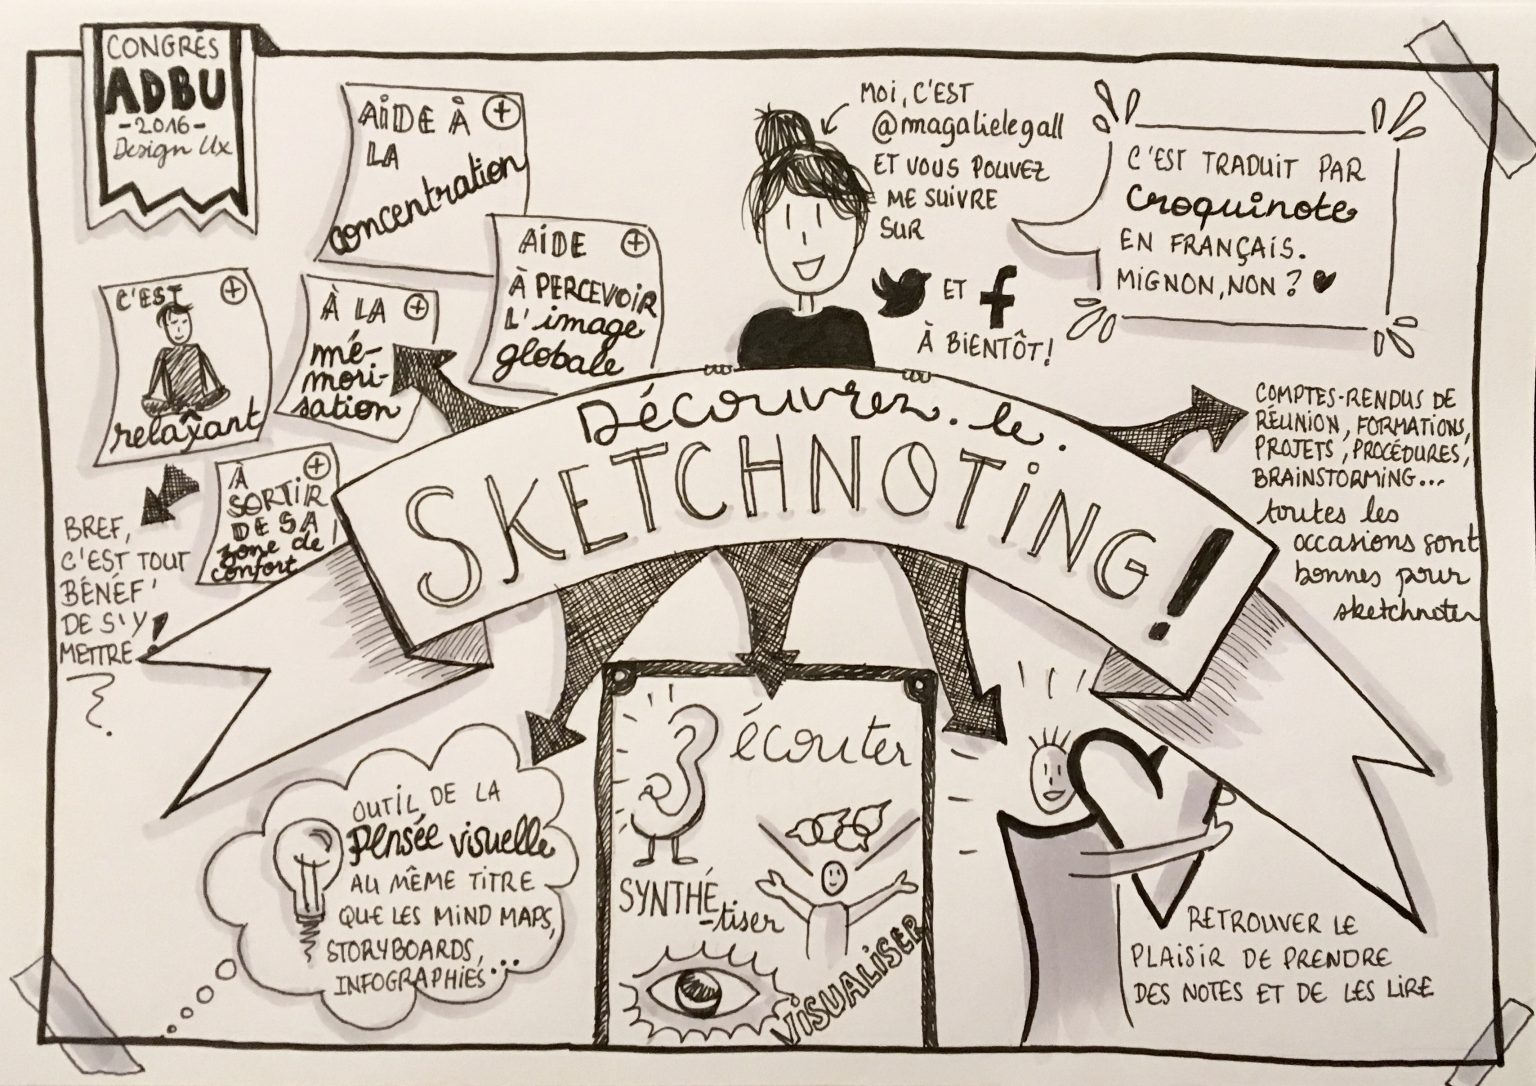 CONGRÈS
ADBU
-2016-
Design Ux
AIDE À
LA
concentration
AIDE
À PERCEVOIR
L'image
globale
C'EST
relaxant
À LA
mé-
mori-
sation
À
SORTIR
DE SA
zone de
confort
BREF,
C'EST TOUT
BÉNÉF'
DE S'Y
METTRE !
MOI, C'EST
@magalielegall
ET VOUS POUVEZ
ME SUIVRE
SUR
ET
À BIENTÔT!
C'EST TRADUIT PAR
Croquinote
EN FRANÇAIS.
MIGNON, NON ? ♥
Découvrez..le.
SKETCHNOTING!
COMPTES-RENDUS DE
RÉUNION, FORMATIONS,
PROJETS, PROCÉDURES,
BRAINSTORMING...
toutes les
occasions sont
bonnes pour
sketchnoter
OUTIL DE LA
Pensée visuelle
AU MÊME TITRE
QUE LES MIND MAPS,
STORYBOARDS,
INFOGRAPHIES...
écouter
SYNTHÉ
-tiser
VISUALISER
RETROUVER LE
PLAISIR DE PRENDRE
DES NOTES ET DE LES LIRE